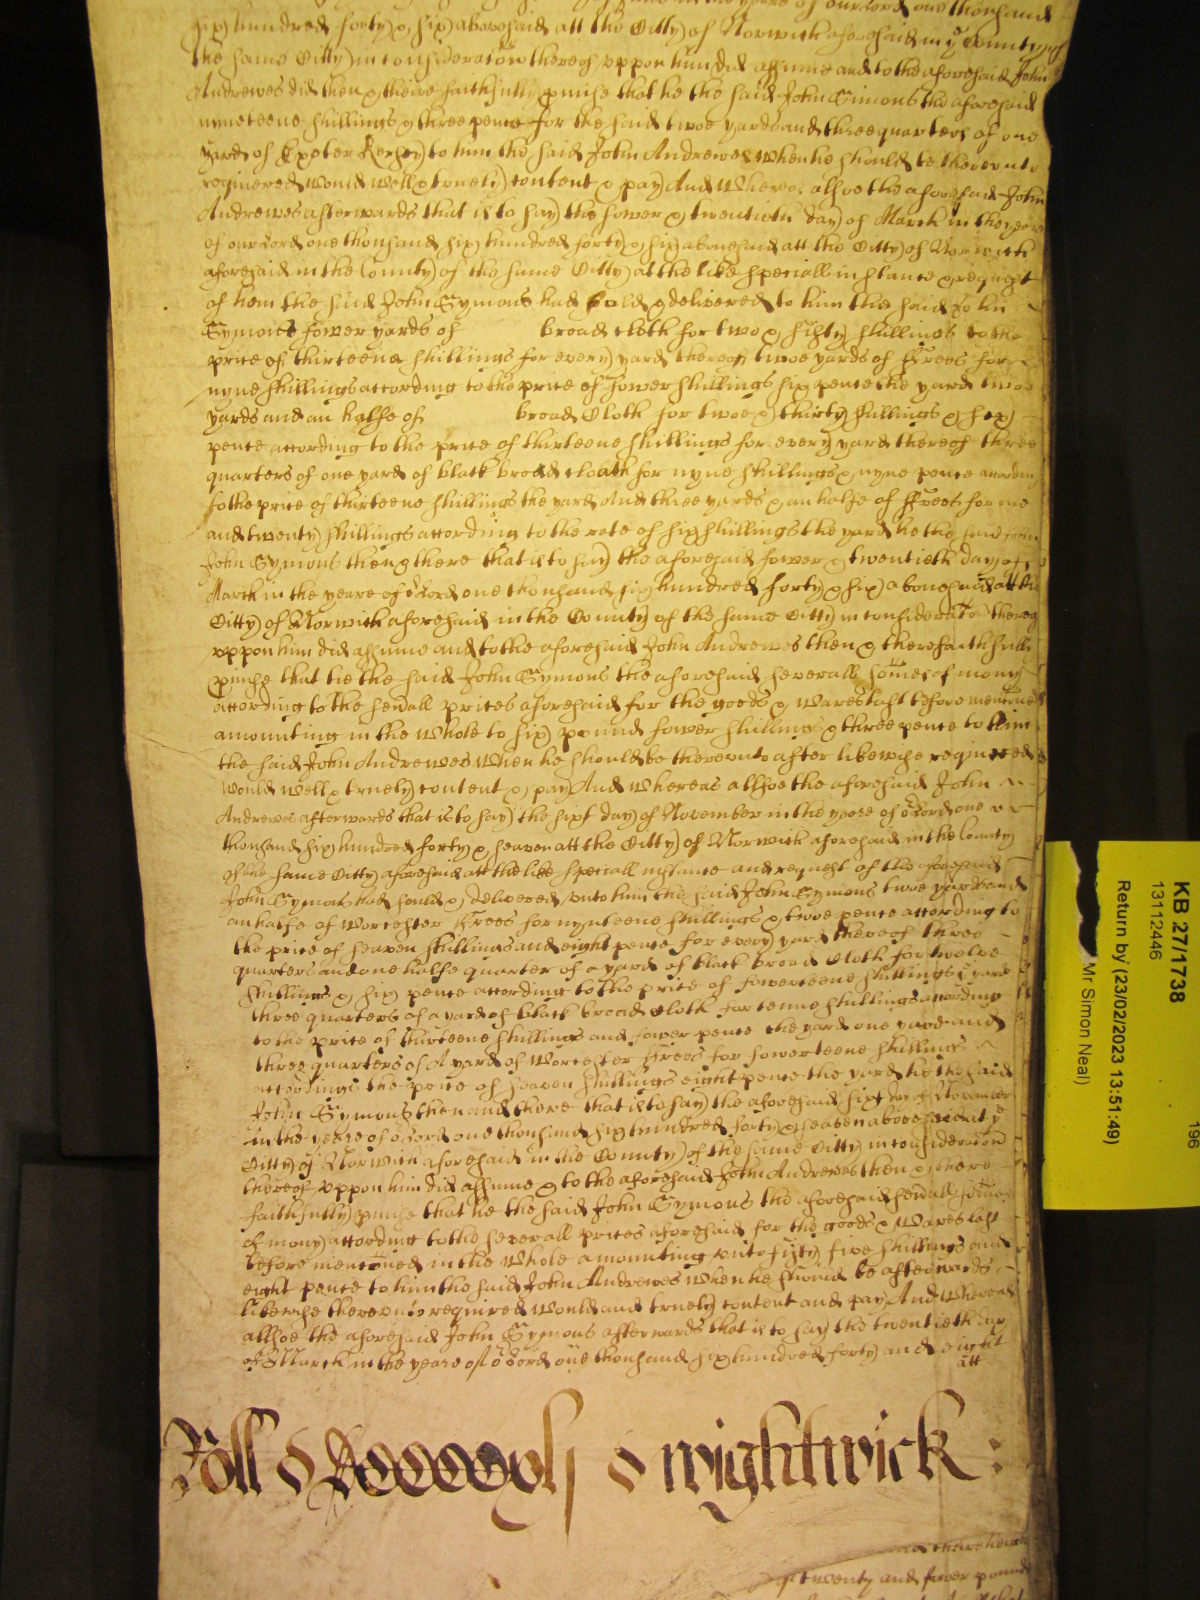 yeare of our Lord one thousand
six hundred forty & six abovesaid att the Citty of Norwich aforesaid in ye County of
the same Citty in consideracon thereof uppon him did assume and to the aforesaid John
Andrewes did then & theire faithfully pmise that he the said John Simons the aforesaid
nyneteene shillings & three pence for the said twoe yards and three quarters of one
yard of Exeter Kersey to him the said John Andrewes when he should be thereunto
required would well & truely content & pay And Whereas allsoe the aforesaid John
Andrewes afterwards that is to say the fower & twentieth day of March in the yeare
of our Lord one thousand six hundred forty & six abovesaid att the Citty of Norwich
aforesaid in the County of the same Citty at the like speciall instance & request
of him the said John Symons had sould & delivered to him the said John
Symons fower yards of broad cloth for two & fifty shillings to the
price of thirteene shillings for every yard thereof twoe yards of ffrees for
nyne shillings according to the price of fower shillings six pence the yard twoe
yards and an halfe of broad Cloth for twoe & thirty shillings & six
pence according to the price of thirteene shillings for every yard thereof three
quarters of one yard of black broad cloath for nyne shillings & nyne pence according
to the price of thirteene shillings the yard And three yards & an halfe of ffrees for one
and twenty shillings according to the rate of six shillings the yard he the said John
John Symons then & there that is to say the aforesaid fower & twentieth day of
March in the yeare of or Lord one thousand six hundred forty & six abovesaid att the
Citty of Norwich aforesaid in the County of the same Citty in consideracon thereof
uppon him did assume and to the aforesaid John Andrewes then & there faithfully
pmise that he the said John Symons the aforesaid severall somes of mony
according to the sevall prices aforesaid for the goods & wares last before mencioned
amounting in the whole to six pound fower shillings & three pence to him
the said John Andrewes when he should be thereunto after likewise required
would well & truely content & pay And whereas allsoe the aforesaid John
Andrewes afterwards that is to say the sixt day of November in the yeare of or Lord one
thousand six hundred forty & seaven att the Citty of Norwich aforesaid in the County
of the same Citty aforesaid att the like speciall instance and request of the aforesaid
John Symons had sould & delivered unto him the said John Symons twoe yards and
an halfe of Worcester ffrees for nynteene shillings & twoe pence according to
the price of seaven shillings and eight pence for every yard thereof three
quarters and one halfe quarter of a yard of black broad Cloth for twelve
shillings & six pence according to the price of fowerteene shillings ye yard
three quarters of a yard of black broad Cloth for tenne shillings according
to the price of thirteene shillings and fower pence the yard one yard and
three quarters of a yard of Worcester ffrees for fowerteene shillings
according the price of seaven shillings eight pence the yard he the said
John Symons then and there that is to say the aforesaid sixt day of November
in the yeare of or Lord one thousand six hundred forty & seaven abovesaid at ye
Citty of Norwich aforesaid in the County of the same Citty in consideracon
thereof uppon him did assume & to the aforesaid John Andrewes then & there
faithfully pmise that he the said John Symons the aforesaid sevall somes
of mony according to the severall prices aforesaid for the goods & wares last
before mencioned in the whole amounting unto fifty five shillings and
eight pence to him the said John Andrewes when he should be afterwards
likewise thereunto required would and truely content and pay And whereas
allsoe the aforesaid John Symons afterwards that is to say the twentieth day
of March in the yeare of or Lord one thousand six hundred forty and eight
att
Wightwick :
twenty and fower pounds
KB 27/1738
13112446
Return by (23/02/2023 13:51:49)
Mr Simon Neal)
196